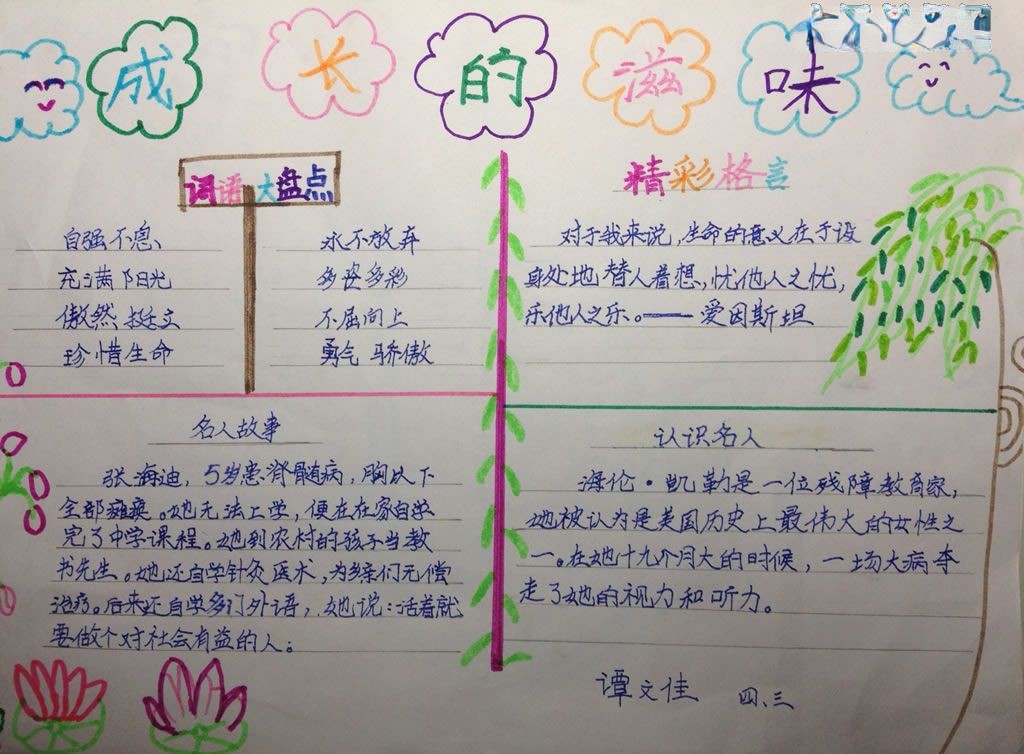 成长的滋味
词语大盘点
自强不息、
充满阳光
傲然挺立
珍惜生命
永不放弃
多姿多彩
不屈向上
勇气 骄傲
精彩格言
对于我来说,生命的意义在于设
身处地替人着想,忧他人之忧,
乐他人之乐。——爱因斯坦
名人故事
张海迪,5岁患脊髓病,胸以下
全部瘫痪。她无法上学,便在在家自学
完了中学课程。她到农村的孩子当教
书先生。她还自学针灸医术,为乡亲们无偿
治疗。后来还自学多门外语,她说:活着就
要做个对社会有益的人。
认识名人
海伦·凯勒是一位残障教育家,
她被认为是美国历史上最伟大的女性之
一。在她十九个月大的时候,一场大病夺
走了她的视力和听力。
谭文佳 四、三